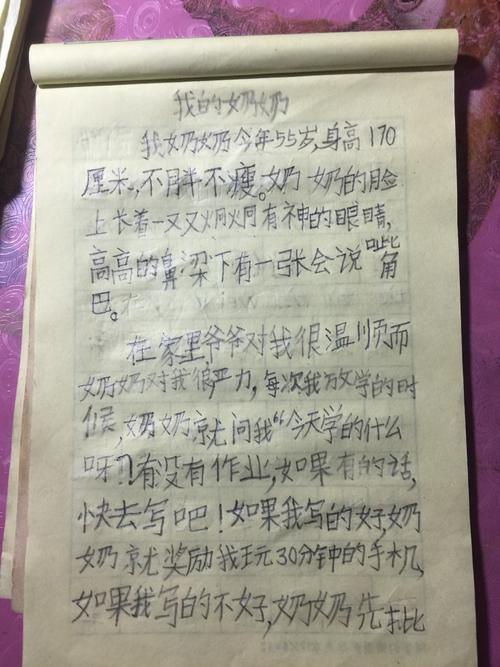 我的奶奶
我奶奶今年55岁,身高170
厘米,不胖不瘦。奶奶的脸
上长着一又又炯炯有神的眼睛,
高高的鼻梁下有一张会说嘴
巴。
在家里爷爷对我很温顺而
奶奶对我很严力,每次我放学的时
候,奶奶就问我“今天学的什么
呀?有没有作业,如果有的话,
快去写吧!如果我写的好,奶
奶就奖励我玩30分钟的手机,
如果我写的不好,奶奶先批